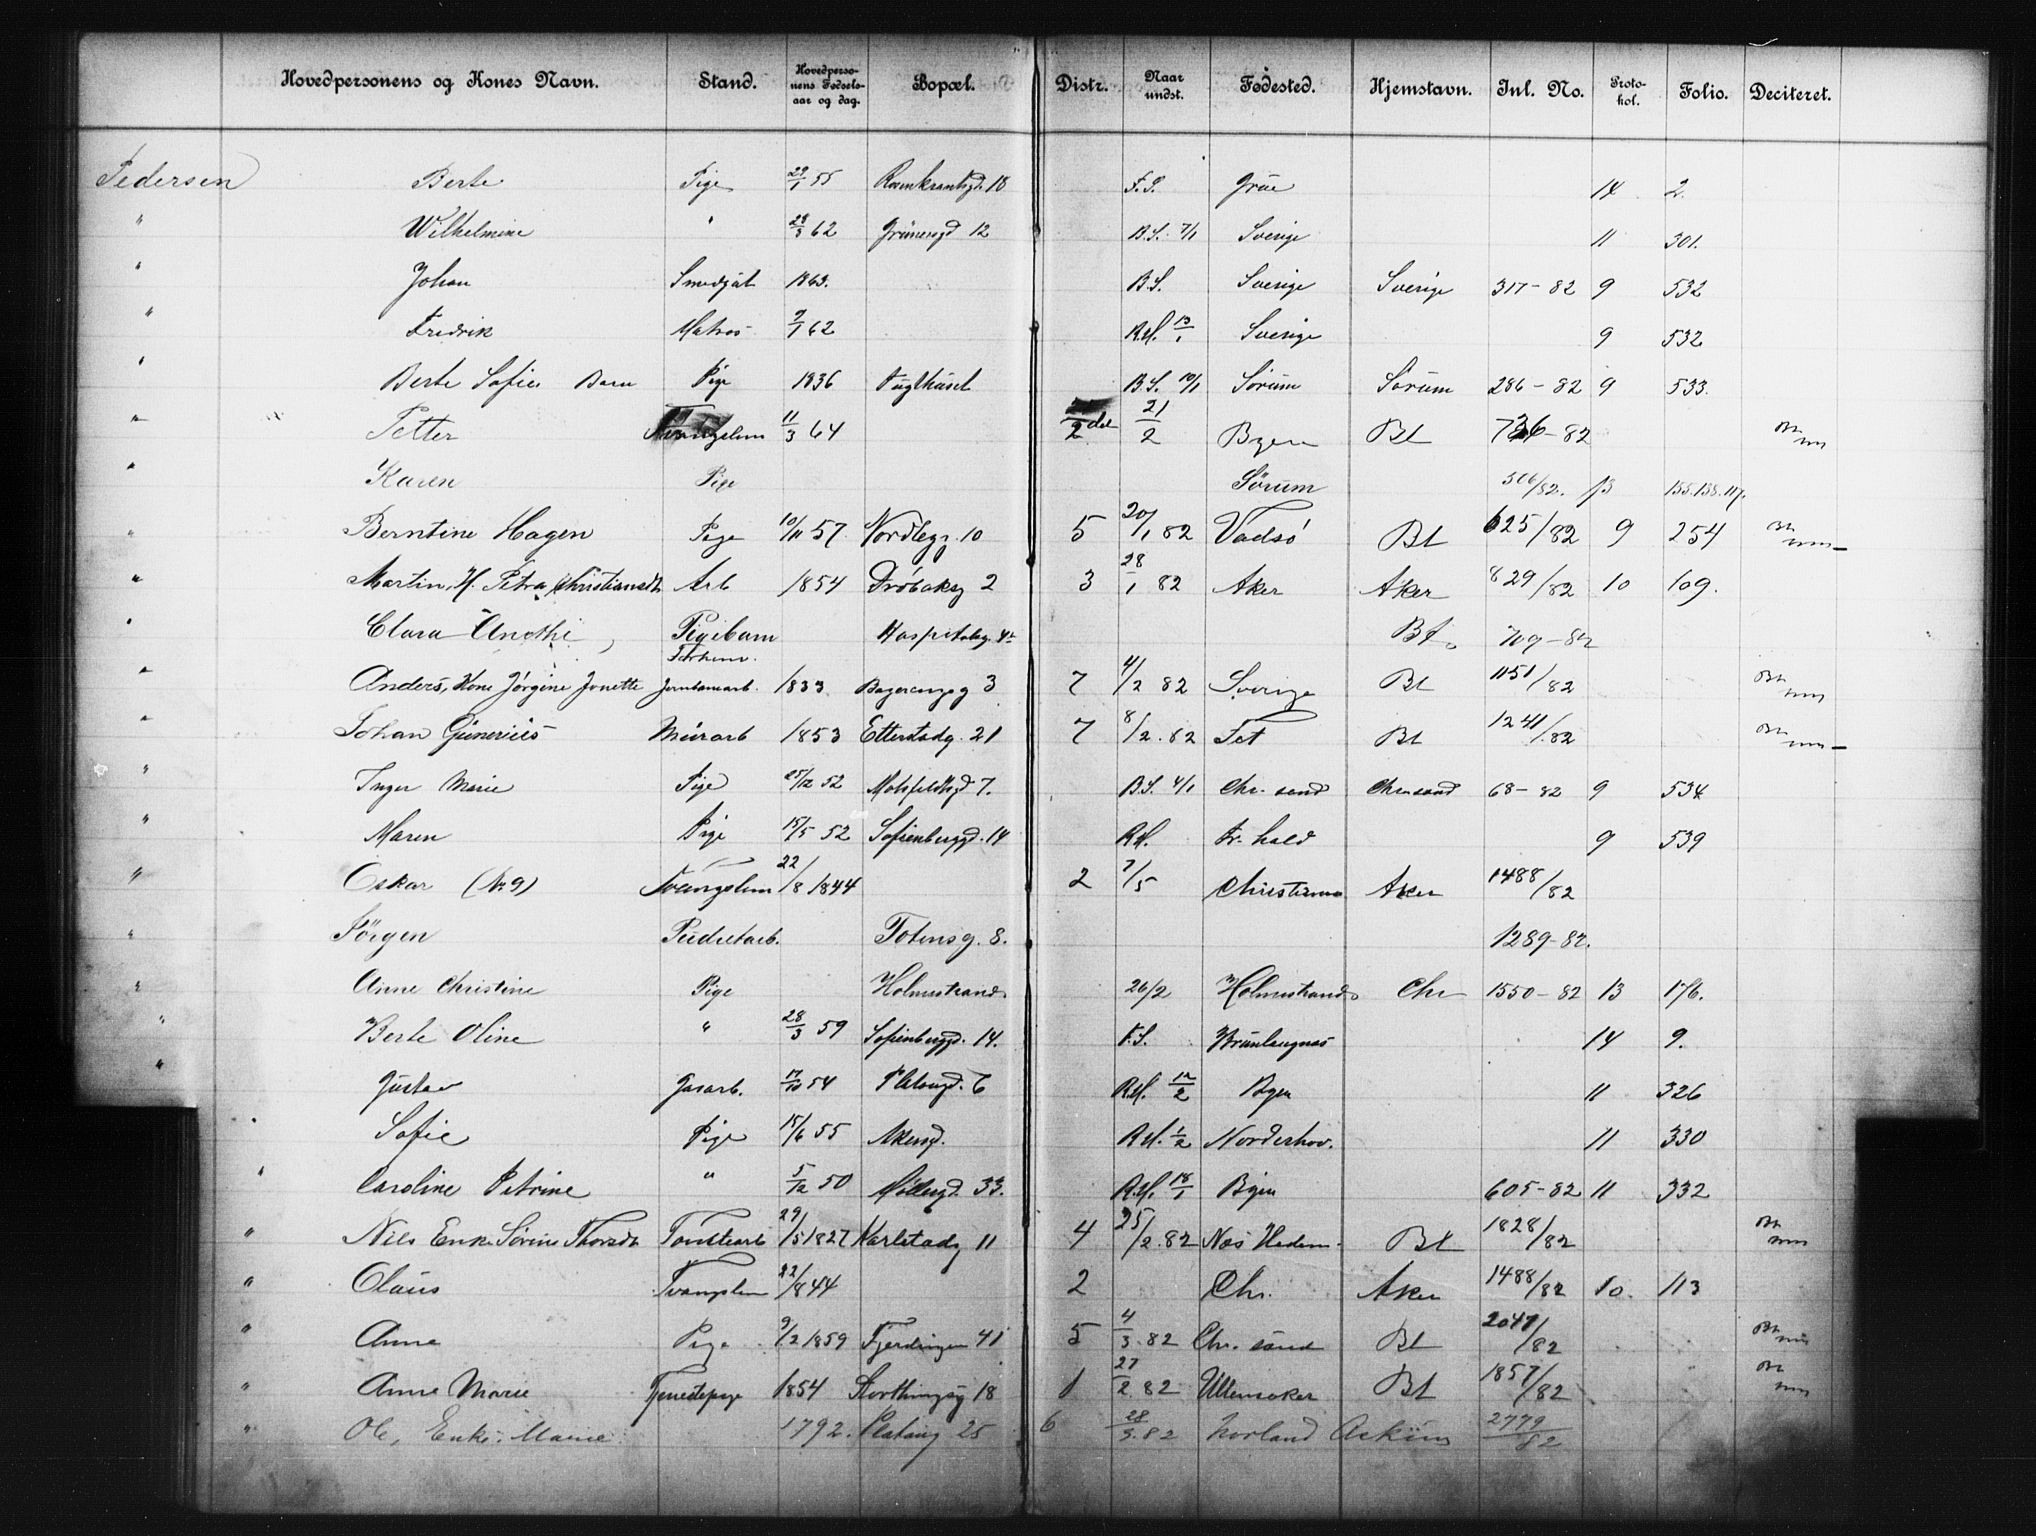 Hovedpersonens og Kones Navn. Stand. Hovedperso-nens Fødsels-aar og dag. Bopæl. Distr. Naar undst. Fødested. Hjemstavn. Inl. No. Proto-kol. Folio. Deciteret.
Pedersen Berte Pige 29/1 55 Rosenkrantzgd. 18 F.S. Grue 14 2.
" Wilhelmine " 29/3 62 Grünersgd 12 B.S. 7/1 Sverige 11 301.
" Johan Smedgut 1863. B.S. Sverige Sverige 317-82 9 532
" Fredrik Matros 9/1 62 R.H. 13/1 Sverige 9 532
" Berte Sofie Barn Pige 1836 Tugthuset B.S. 10/1 Sørum Sørum 286-82 9 533.
" Petter Tvangslem 11/3 64 21/2 Byen Bt 736-82
" Karen Pige Sørum 306/82. 13 155.138.117.
" Berntine Hagen Pige 10/11 57 Nordbyg. 10 5 20/1 82 Vadsö Bt 625/82 9 254
" Martin, H. Petra Christiansdt Arb 1854 Dröbaksg 2 3 28/1 82 Aker Aker 829/82 10 109.
" Clara Anethe, Pigebarn Hospitalsg. Bt 709-82
" Anders, Kone Jørgine Jonette Jernbanearb. 1833 3 7 4/2 82 Sverige Bt 1151/82
" Johan Guneriüs Mürarb 1853 Etterstadg. 21 7 8/2. 82 Fet Bt 1241/82
" Inger Marie Pige 25/12 52 Motzfeldtsgd 7. B.S. 4/1 Chr. sand Chr.sand 68-82 9 534
" Maren Pige 15/5 52 Sofienberggd. 14 R.H. Fr. hald 9 539
" Oskar (No 9) Tvangslem 22/8 1844 2 7/5 Christiania Aker 1488/82
" Jörgen Pudretarb. Totensg. 8. 1289-82.
" Anne Christine Pige Holmestrand 26/2 Holmestrand Chr 1550-82 13 176.
" Berte Oline " 28/3 59 Sofienberggd. 14. F.S. Brunlaugnæs 14 9.
" Gustav Gasarb. 17/10 54 Platousgd. 6 R.H. 12/2 Byen 11 326
" Sofie Pige 15/6 55 Akersgd. R.H. 1/2 Norderhov. 11 330
" Caroline Petrine " 5/12 50 Møllergd. 33. R.H. 18/1 Byen 605-82 11 332
" Nils Enke Sørine Thorsdt Tomtearb 29/5 1827 Karlstadg 11 4 25/2. 82 Næs Hedem. Bt 1828/82
" Claus Tvangslem 22/8 44 2 Chr. Aker 1488/82 10. 113
" Anne Pige 9/2 1859 Fjerdingen 41 5 4/3. 82 Chr. sand Bt 2047/82
" Anne Marie Tjenestepige 1854 Storthingsg 18 1 27/2. 82 Ullensaker Bt 1857/82
" Ole, Enke: Marie 1792. Platoug 25 6 28/3. 82 Norland Askim 2779/82